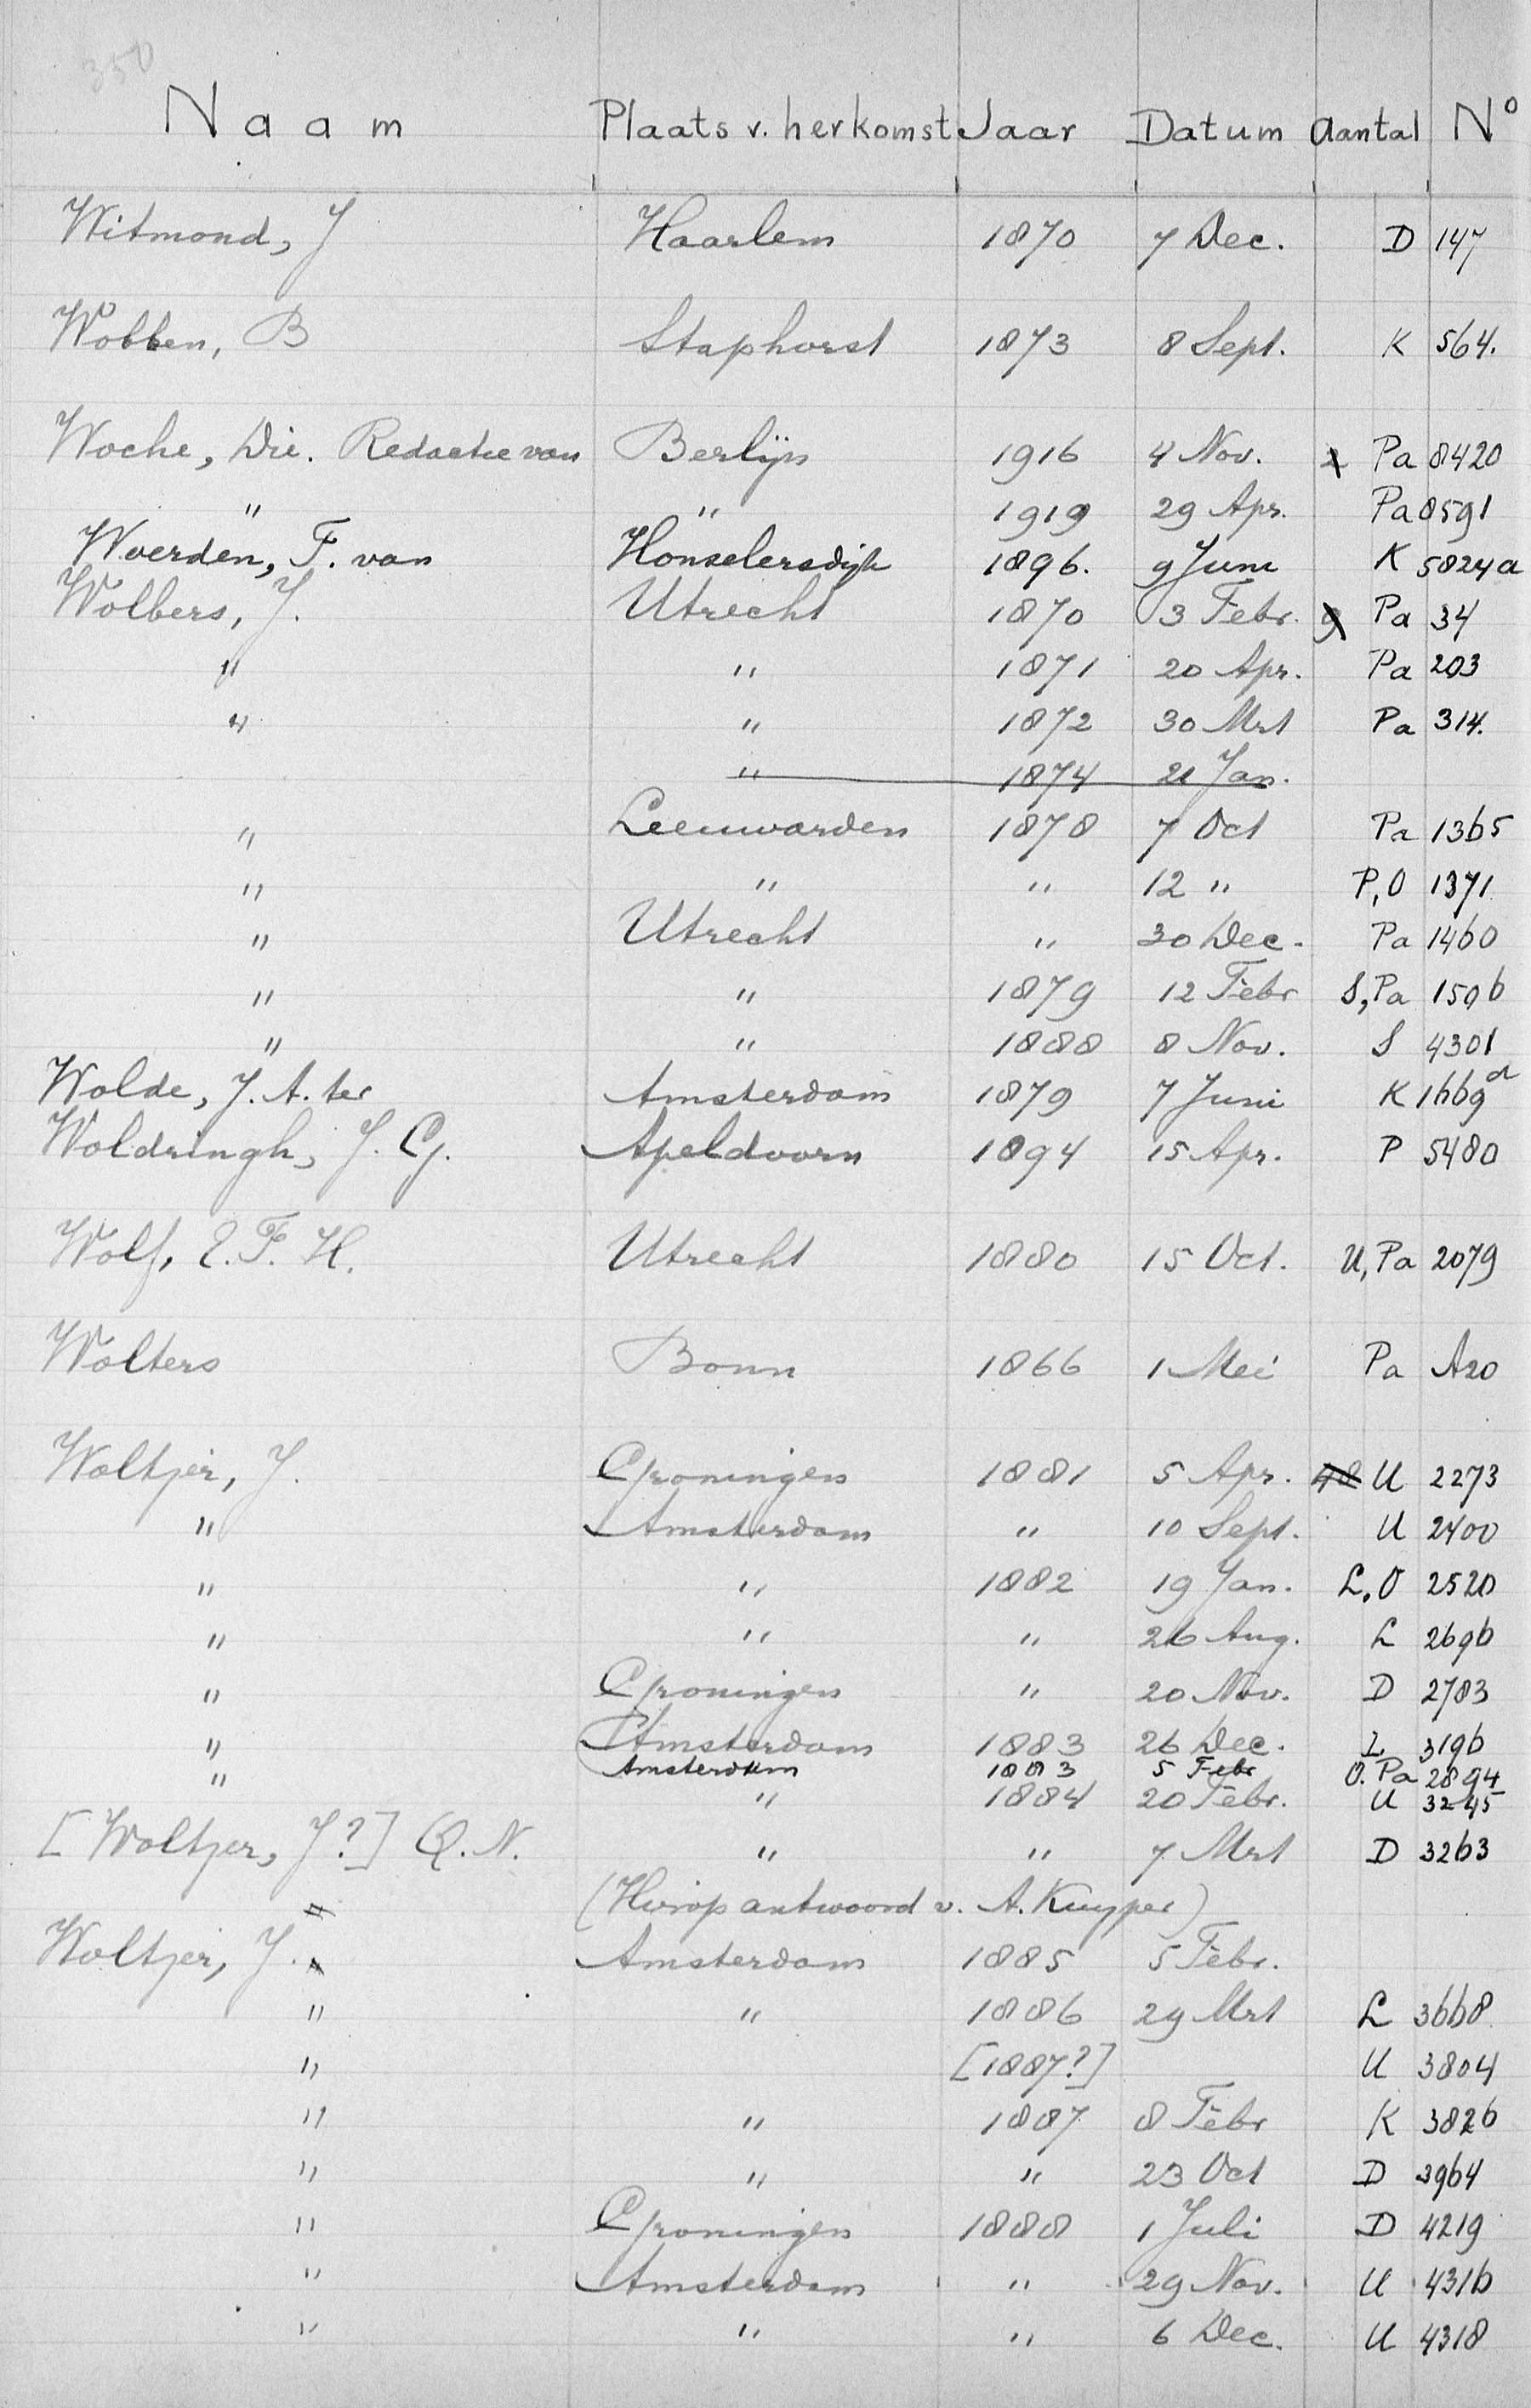 350
Naam Plaats v. herkomst Jaar Datum Aantal No
Witmond, J Haarlem 1870 7 Dec. D 147
Wobben, B Staphorst 1873 8 Sept. K 564.
Woche, Die. Redactie van Berlijn 1916 4 Nov. Pa 8420
" " 1919 29 Apr. Pa 8591
Woerden, F. van Honselersdijk 1896. 9 Juni K 5824a
Wolbers, J. Utrecht 1870 3 Febr. Pa 34
" " 1871 20 Apr. Pa 203
" " 1872 30 Mrt Pa 314.
" 1874 21 Jan.
" Leeuwarden 1878 7 Oct Pa 1365
" " " 12 " P, O 1371
" Utrecht " 30 Dec. Pa 1460
" " 1879 12 Febr S, Pa 1506
" " 1888 8 Nov. S 4301
Wolde, J. A. ter Amsterdam 1879 7 Juni K 1669a
Woldringh, J. G. Apeldoorn 1894 15 Apr. P 5480
Wolf, E. F. H. Utrecht 1880 15 Oct. U, Pa 2079
Wolters Bonn 1866 1 Mei Pa A20
Woltjer, J. Groningen 1881 5 Apr. 48 U 2273
" Amsterdam " 10 Sept. U 2400
" " 1882 19 Jan. L, O 2520
" " " 26 Aug. L 2696
" Groningen " 20 Nov. D 2783
" Amsterdam 1883 26 Dec. L 3196
" Amsterdam 1883 5 Febr O. Pa 2894
" 1884 20 Febr. U 3245
[Woltjer, J?] Q. N. " " 7 Mrt D 3263
" (Hierop antwoord v. A. Kuyper)
Woltjer, J. Amsterdam 1885 5 Febr.
" " 1886 29 Mrt L 3668
" [1887?] U 3804
" " 1887 8 Febr K 3826
" " " 23 Oct D 3964
" Groningen 1888 1 Juli D 4219
" Amsterdam " 29 Nov. U 4316
" " " 6 Dec. U 4318